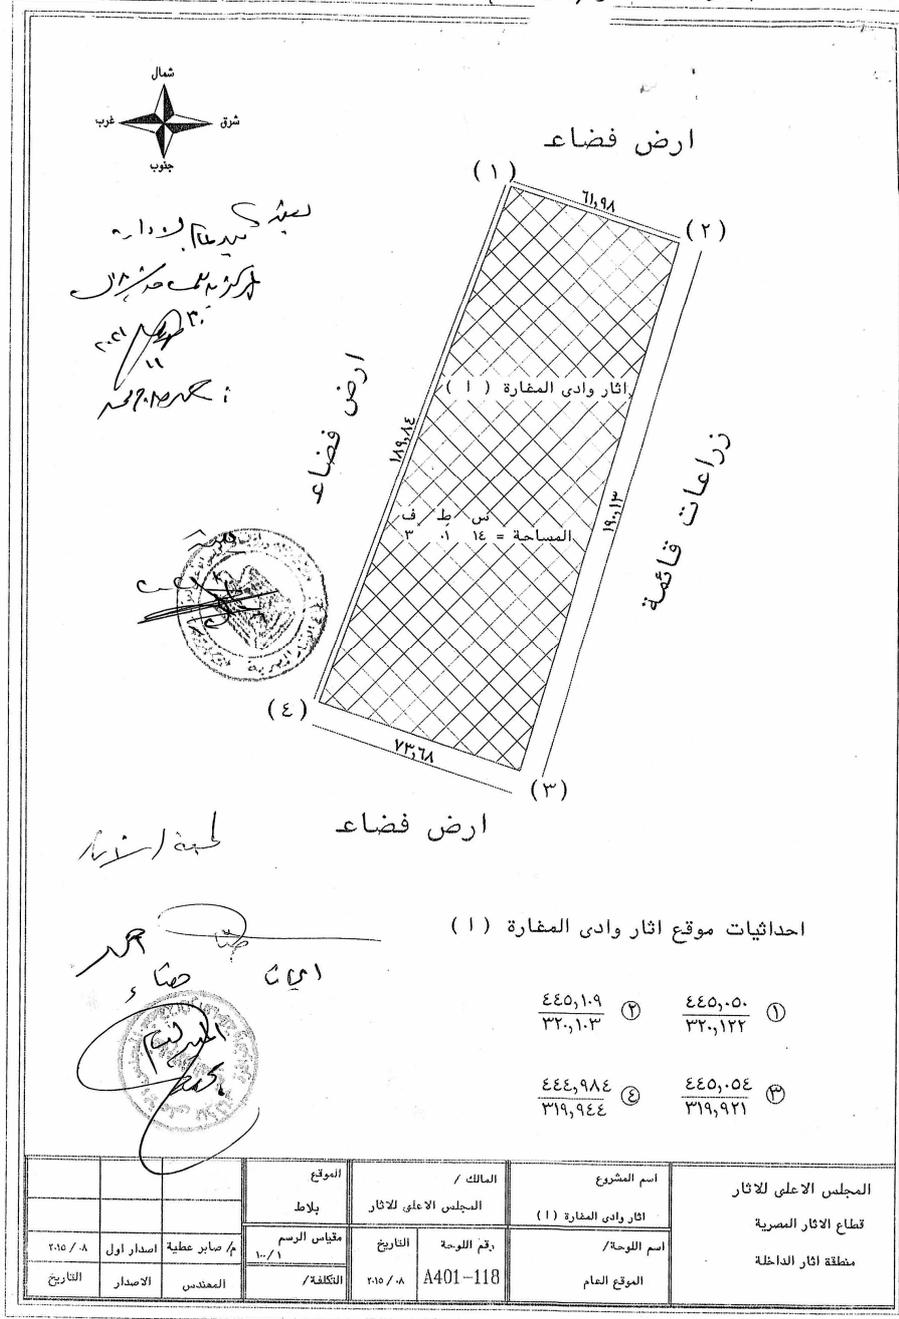 شمال
شرق
غرب
جنوب
ارض فضاء
(١)
٦١,٩٨
(٢)
اثار وادى المغارة ( ا )
ارض فضاء
١٨٩,٨٤
١٩٠,١٣
زراعات قائمة
س ط ف
المساحة = ١٤ ٠١ ٣
(٤)
٧٣,٦٨
(٣)
ارض فضاء
احداثيات موقع اثار وادى المغارة ( ا )
١ ٤٤٥,٠٥٠ ٢ ٤٤٥,١٠٩
٣٢٠,١٢٢ ٣٢٠,١٠٣
٣ ٤٤٥,٠٥٤ ٤ ٤٤٤,٩٨٤
٣١٩,٩٢١ ٣١٩,٩٤٤
المجلس الاعلى للاثار
قطاع الاثار المصرية
منطقة اثار الداخلة
اسم المشروع
اثار وادى المغارة ( ا )
اسم اللوحة/
الموقع العام
المالك /
المجلس الاعلى للاثار
رقم اللوحة
A401-118
التاريخ
٠٨ / ٢٠١٥
الموقع
بلاط
مقياس الرسم
١٠٠/١
التكلفة/
م/ صابر عطية اصدار اول ٠٨ / ٢٠١٥
المهندس الاصدار التاريخ